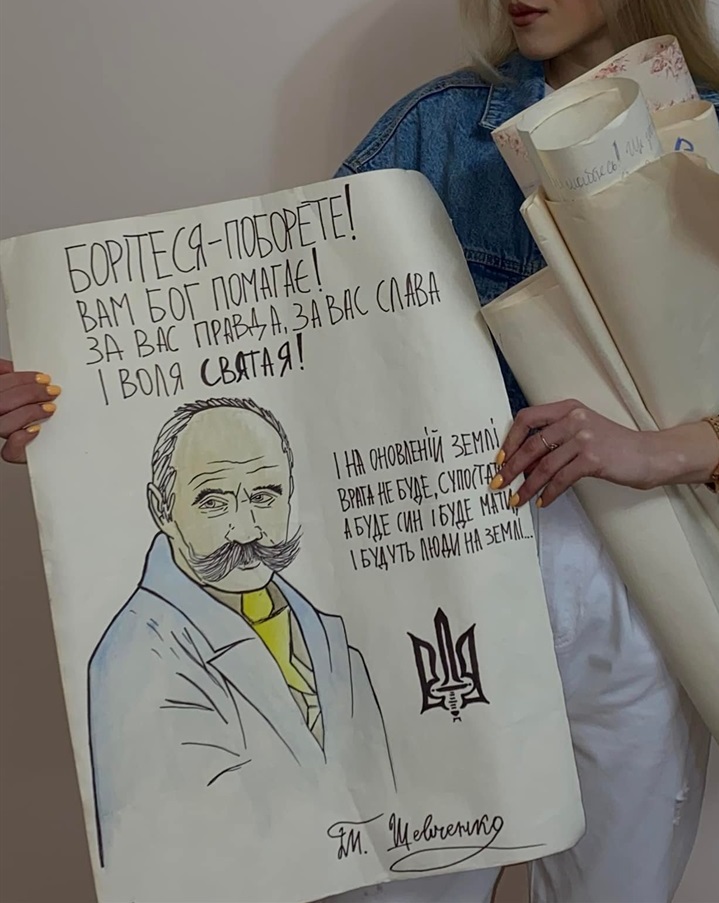 БОРІТЕСЯ-ПОБОРЕТЕ!
ВАМ БОГ ПОМАГАЄ!
ЗА ВАС ПРАВДА, ЗА ВАС СЛАВА
І ВОЛЯ СВЯТАЯ!
І НА ОНОВЛЕНІЙ ЗЕМЛІ
ВРАГА НЕ БУДЕ, СУПОСТАТА
А БУДЕ СИН І БУДЕ МАТИ,
І БУДУТЬ ЛЮДИ НА ЗЕМЛІ...
Т. Шевченко